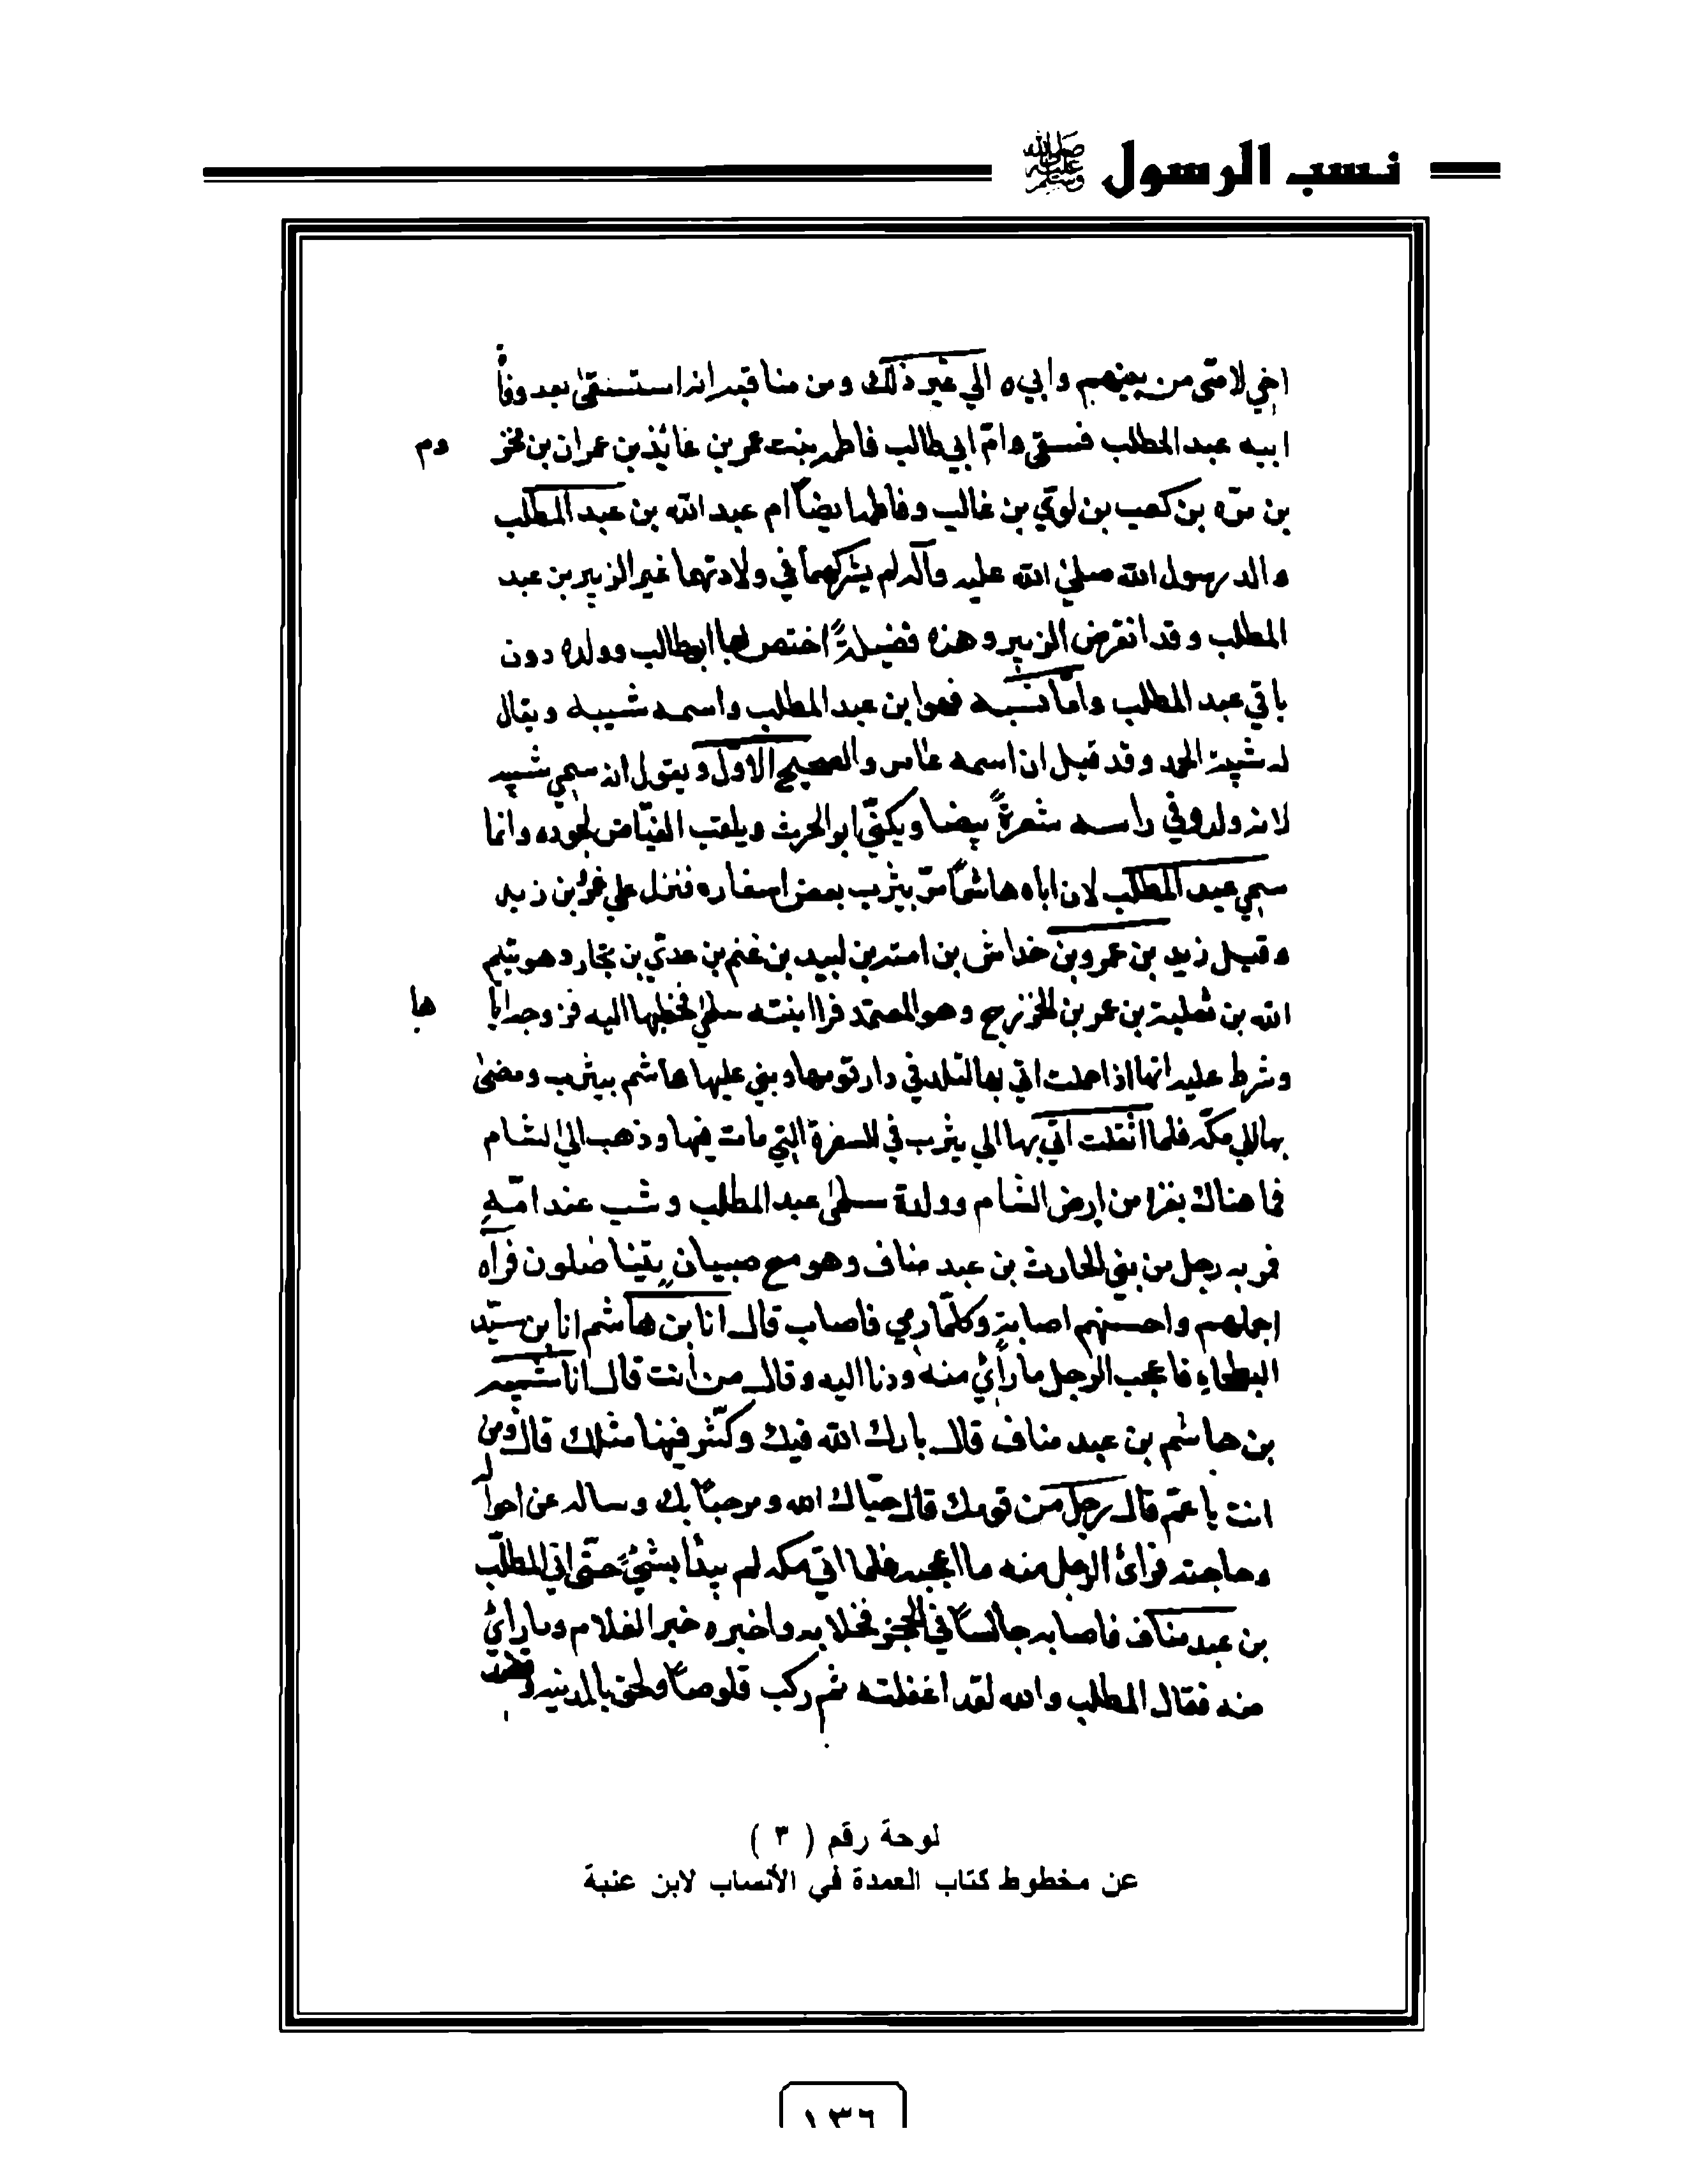 نسب الرسول ﷺ
اخي لامتى من بينهم وابي ه الي غير ذلك ومن مناقبه انه استسقى بعد وفاة
ابيه عبد المطلب فسقى وامّ ابي طالب فاطمه بنت عمر بن عايذ بن عمران بن مخز وم
بن مرّه بن كعب بن لوي بن غالب وفاطمه ايضاً ام عبد الله بن عبد المطلب
والد رسول الله صلى الله عليه وآله لم يشركهما في ولادتهما غير الزبير بن عبد
المطلب وقد انقرض الزبير وهذه فضيلةً اختص بها ابوطالب وولده دون
باقي عبد المطلب وامّا نسبه فهو ابن عبد المطلب واسمه شيبه ويقال
له شيبة الحمد وقد قيل ان اسمه عامر والصحيح الاوّل ويقول انه سمي شيبه
لانه ولد وفي راسه شعرةً بيضا ويكنّى ابو الحرث ويلقب الفيّاض لجوده وانما
سمي عبد المطلب لان اباه هاشماً مرّ بيثرب بعض اسفاره فنزل علي عمرو بن زيد
وقيل زيد بن عمرو بن خداش بن اميه بن لبيد بن غنم بن عدي بن نجار وهو تيم
الله بن ثعلبة بن عمر بن الخزرج وهو المعتمد فرا ابنته سلمى فخطبها اليه فزوجه ايا ها
وشرط عليه انها اذا حملت اتي بها لتلد في دار قومها وبني عليها هاشم بيثرب ومضى
بها الي مكّه فلما اثقلت اتي بها الي يثرب في السفرة التي مات فيها وذهب الى الشام
فما هناك بغزه من ارض الشام وولدة سلمى عبد المطلب وشب عند امّه
فمر به رجل من بني الحارث بن عبد مناف وهو مع صبيان يتناضلون فرآه
اجملهم واحسنهم اصابة وكلما رمي فاصاب قال انا ابن هاشم انا بن سيّد
البطحاء فاعجب الرجل ما رأى منه ودنا اليه وقال من أنت قال انا شيبه
بن هاشم بن عبد مناف قال بارك الله فيك وكثر فينا مثلك قال ومن
انت يا عم قال رجل من قومك قال حيّاك الله ومرحباً بك وساله عن احواله
وحاجته فرائ الرجل منه ما اعجبه فلما اتي مكه لم يبدأ بشئ حتى اتي المطلب
بن عبد مناف فاصابه جالساً في الحجر فخلا به واخبره خبر الغلام وما رأى
منه فقال المطلب والله لقد اغفلته ثم ركب قلوصاً ولحق بالمدينه
لوحة رقم ( ٣ )
عن مخطوط كتاب العمدة في الأنساب لابن عنبة
١٣٦